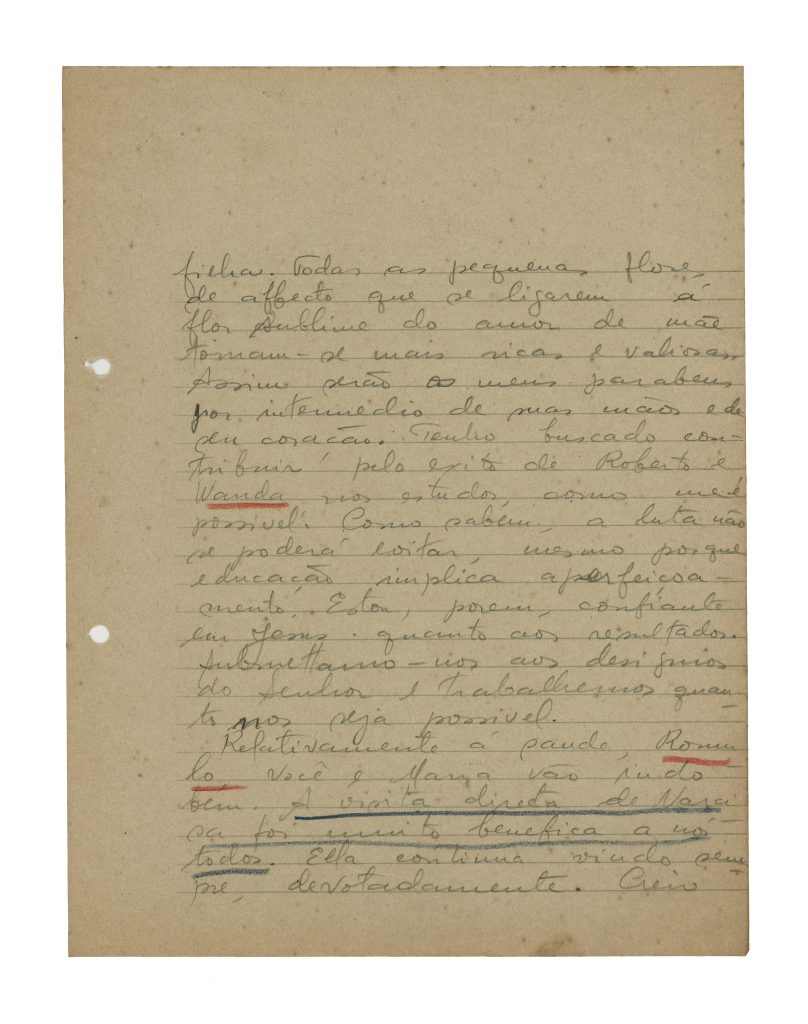 filha. Todas as pequenas flores
de affecto que se ligarem á
flor sublime do amor de mãe
tornam-se mais ricas e valiosas.
Assim serão os meus parabens
por intermedio de suas mãos e de
seu coração. Tenho buscado con-
tribuir pelo exito de Roberto e
Wanda nos estudos, como me é
possivel. Como sabem, a luta não
se poderá evitar, mesmo porque
educação implica aperfeiçoa-
mento. Estou, porem, confiante
em Jesus quanto aos resultados.
Submettamo-nos aos designios
do Senhor e trabalhemos quan-
to nos seja possivel.
Relativamente á saude, Romu
lo, você e Maria vão indo
bem. A visita direta de Nara
sa foi muito benefica a nós
todos. Ella continua vindo sem-
pre, devotadamente. Creio